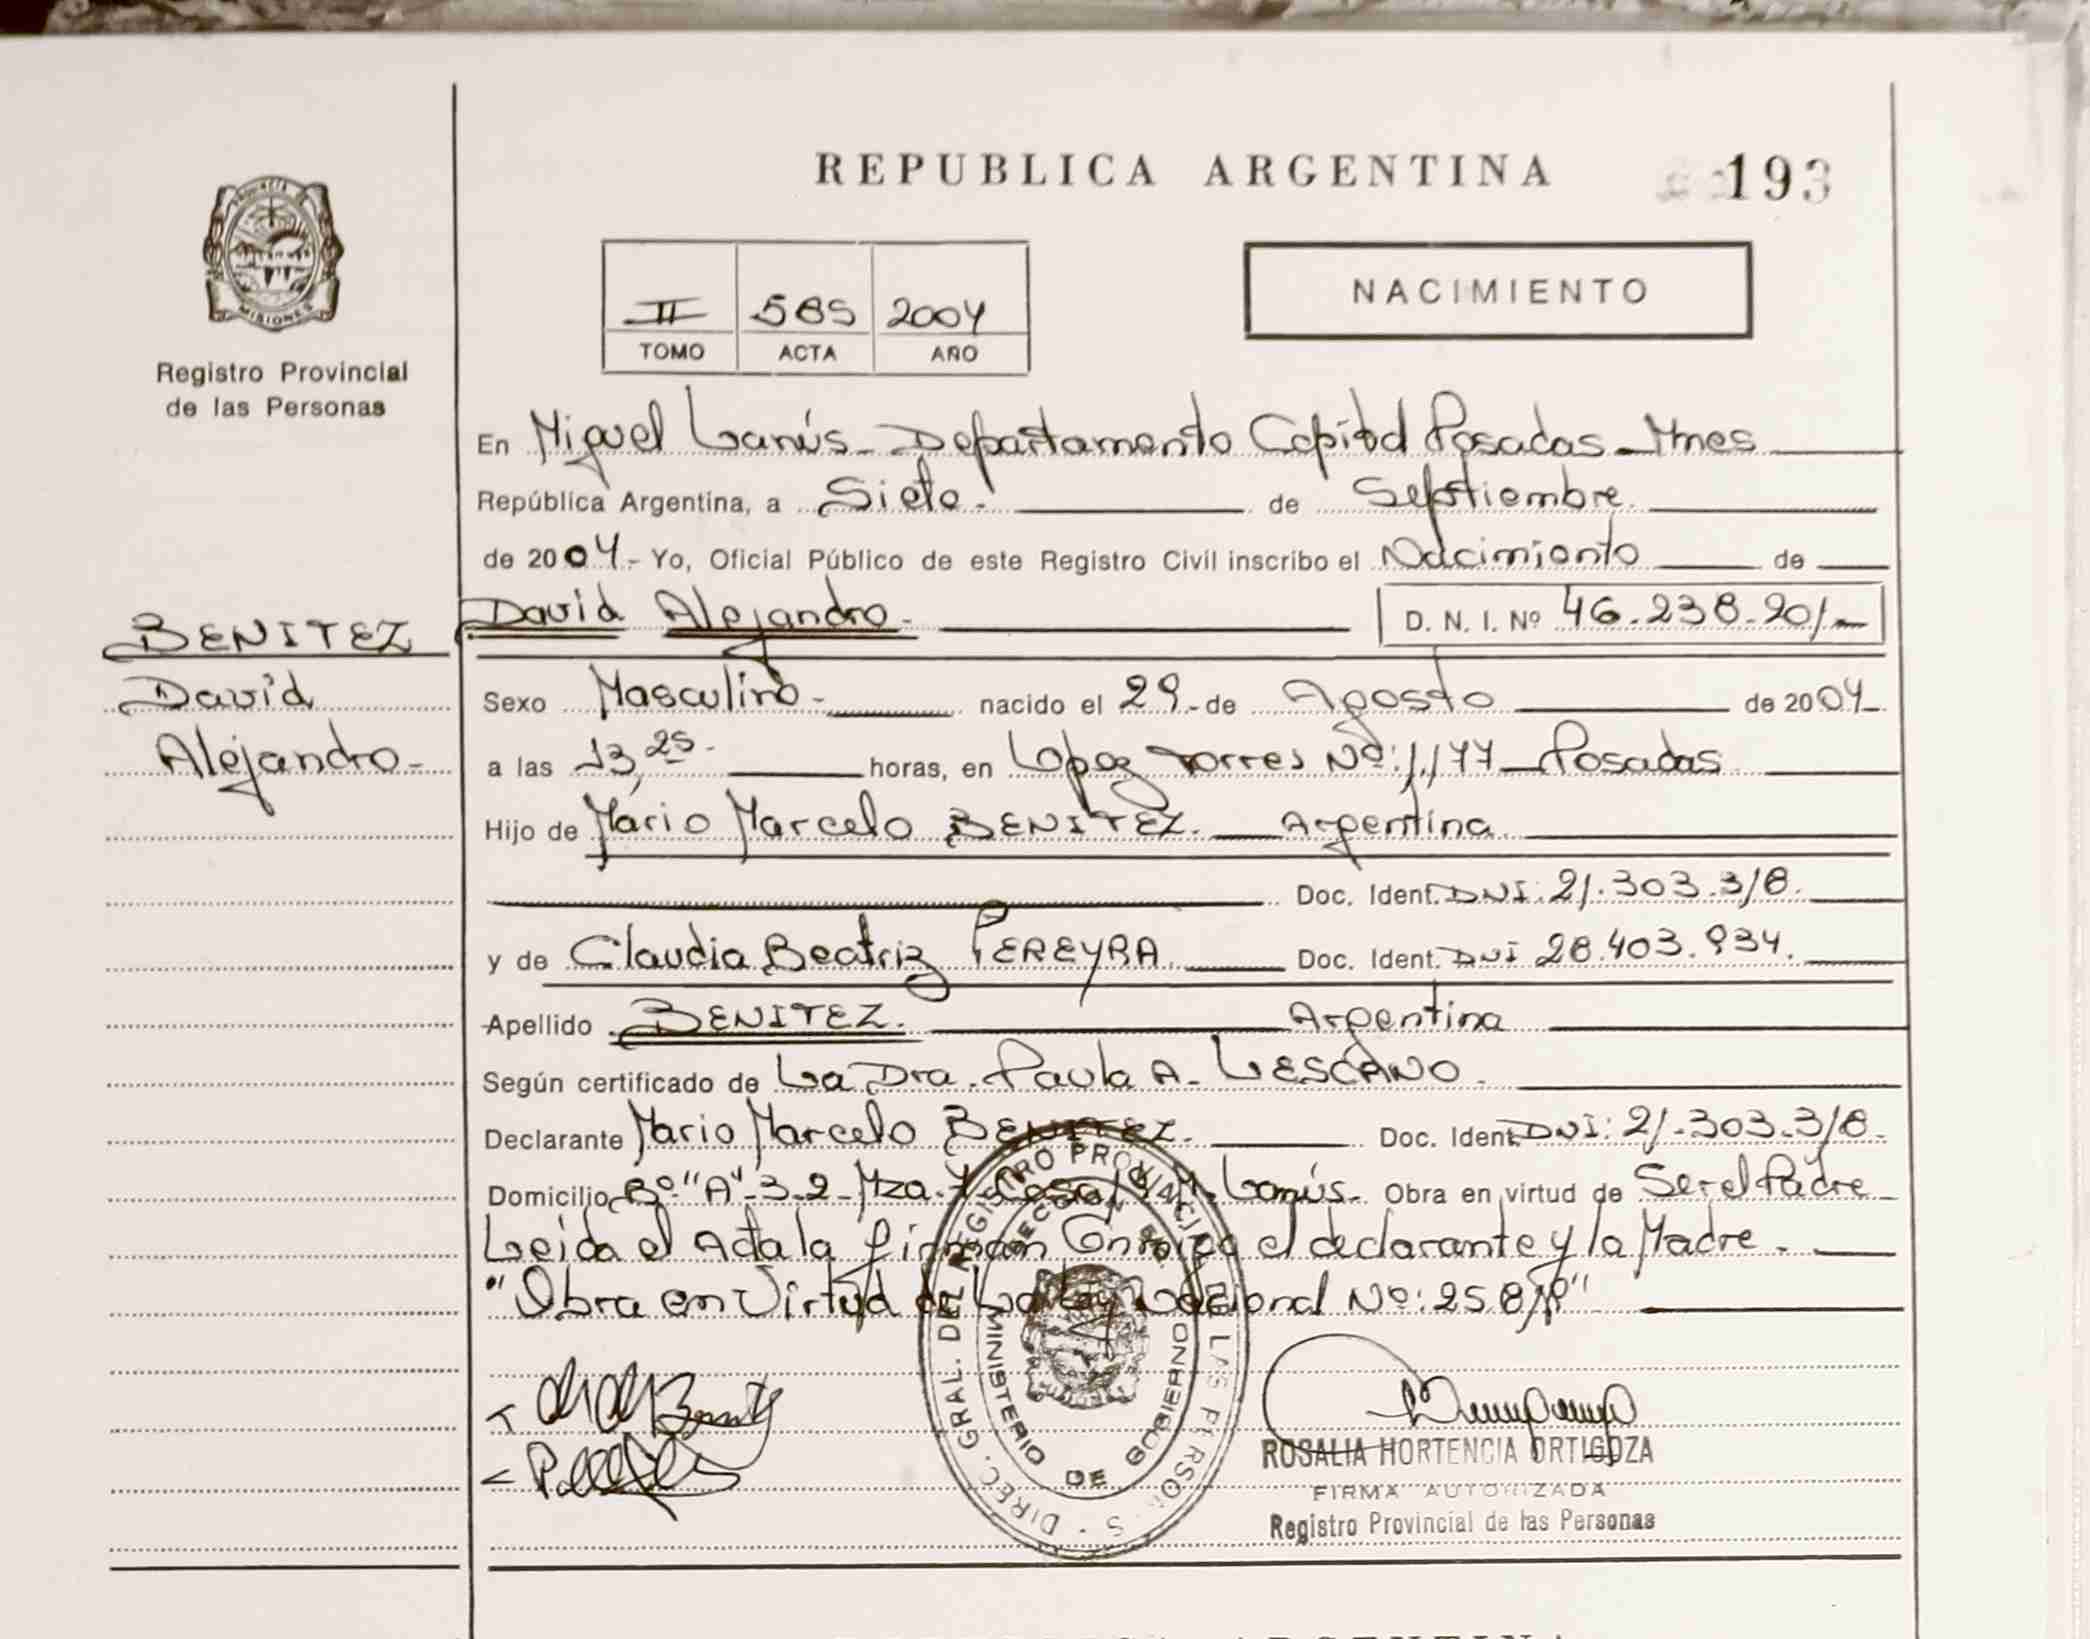 REPUBLICA ARGENTINA
193
PROVINCIA
MISIONES
Registro Provincial
de las Personas
II 585 2004
TOMO ACTA AÑO
NACIMIENTO
En Miguel Lanús - Departamento Capital Posadas - Mnes
República Argentina, a Siete. de Septiembre
de 2004.- Yo, Oficial Público de este Registro Civil inscribo el Nacimiento de
BENITEZ
David
Alejandro-
David Alejandro.- D. N. I. Nº 46.238.901-
Sexo Masculino- nacido el 29.- de Agosto de 2004-
a las 13,25- horas, en Lopez Torres Nº: 1.177 - Posadas
Hijo de Mario Marcelo BENITEZ. Argentina
Doc. Ident. DNI: 21.303.318.
y de Claudia Beatriz PEREYRA Doc. Ident. DNI 28.403.934.
Apellido BENITEZ. Argentina
Según certificado de La Dra. Paula A. LESCANO.
Declarante Mario Marcelo BENITEZ. Doc. Ident. DNI: 21.303.318-
Domicilio Bº "A" 3-2 Mza. Casa M. Lanús. Obra en virtud de Ser el Padre
Leida el Acta la firman Conmigo el declarante y la Madre.
"Obra en Virtud de La Ley Nacional Nº:
DIREC. GRAL. DEL REGISTRO PROVINCIAL DE LAS PERSONAS
MINISTERIO DE GOBIERNO
ROSALIA HORTENCIA ORTIGOZA
FIRMA AUTORIZADA
Registro Provincial de las Personas